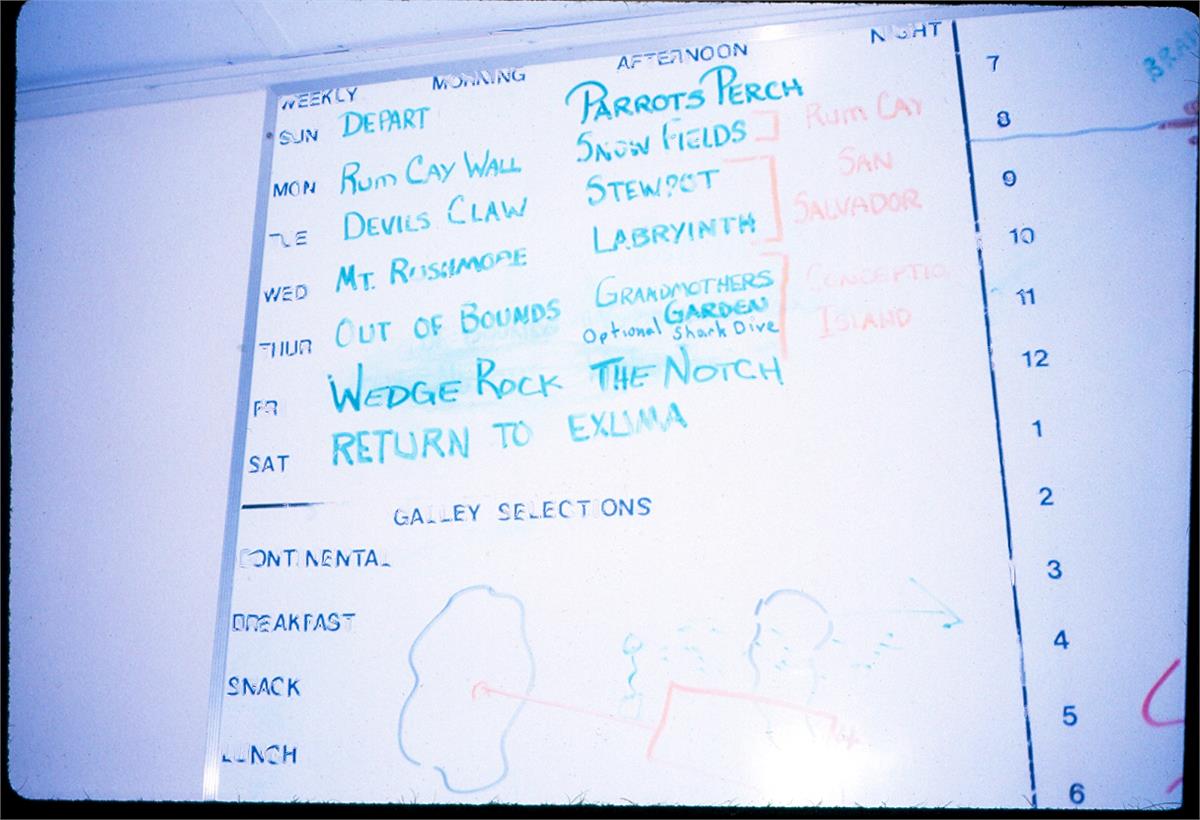 WEEKLY MORNING AFTERNOON NIGHT
SUN DEPART PARROTS PERCH
SNOW FIELDS RUM CAY
MON RUM CAY WALL STEWPOT SAN
TUE DEVILS CLAW LABRYINTH SALVADOR
WED MT. RUSHMORE GRANDMOTHERS CONCEPTIO
GARDEN ISLAND
THUR OUT OF BOUNDS Optional Shark Dive
FRI WEDGE ROCK THE NOTCH
SAT RETURN TO EXUMA
GALLEY SELECTIONS
CONTINENTAL
BREAKFAST
SNACK
LUNCH
7
8
9
10
11
12
1
2
3
4
5
6